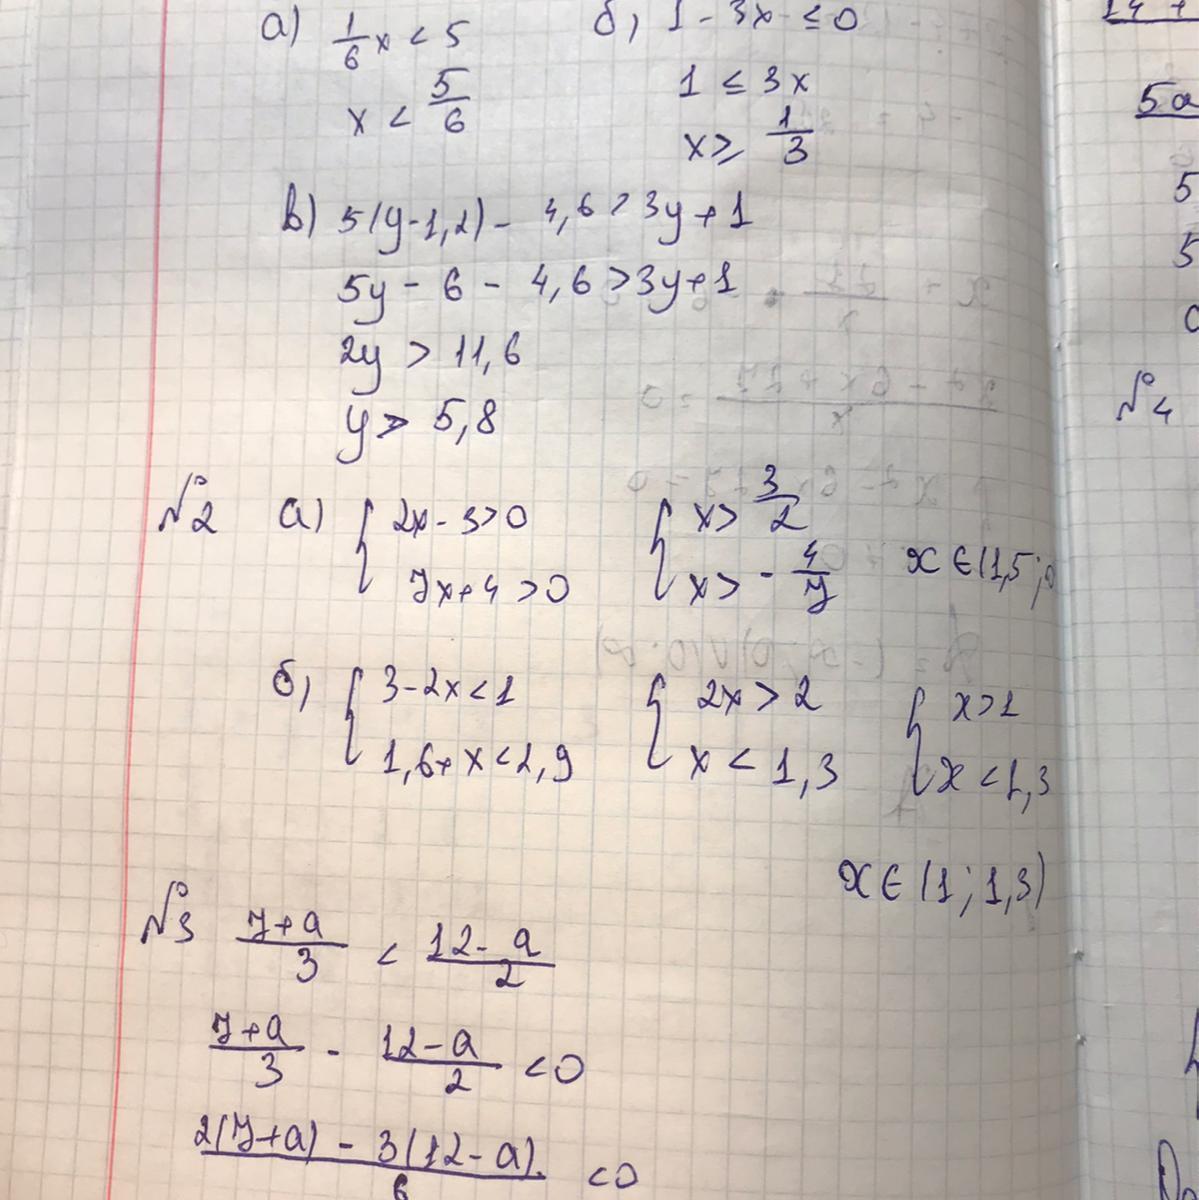 а) 1/6 x < 5
x < 5/6
б) 1 - 3x ≤ 0
1 ≤ 3x
x ≥ 1/3
в) 5(y-1,2) - 4,6 > 3y + 1
5y - 6 - 4,6 > 3y + 1
2y > 11,6
y > 5,8
№2 а) { 2x - 3 > 0 { x > 3/2
7x + 4 > 0 x > - 4/7 x ∈ (1,5;
б) { 3 - 2x < 1 { 2x > 2 { x > 1
1,6 + x < 2,9 x < 1,3 x < 1,3
x ∈ (1; 1,3)
№3 (7+a)/3 < (12-a)/2
(7+a)/3 - (12-a)/2 < 0
(2(7+a) - 3(12-a))/6 < 0
5a
5
5
№4